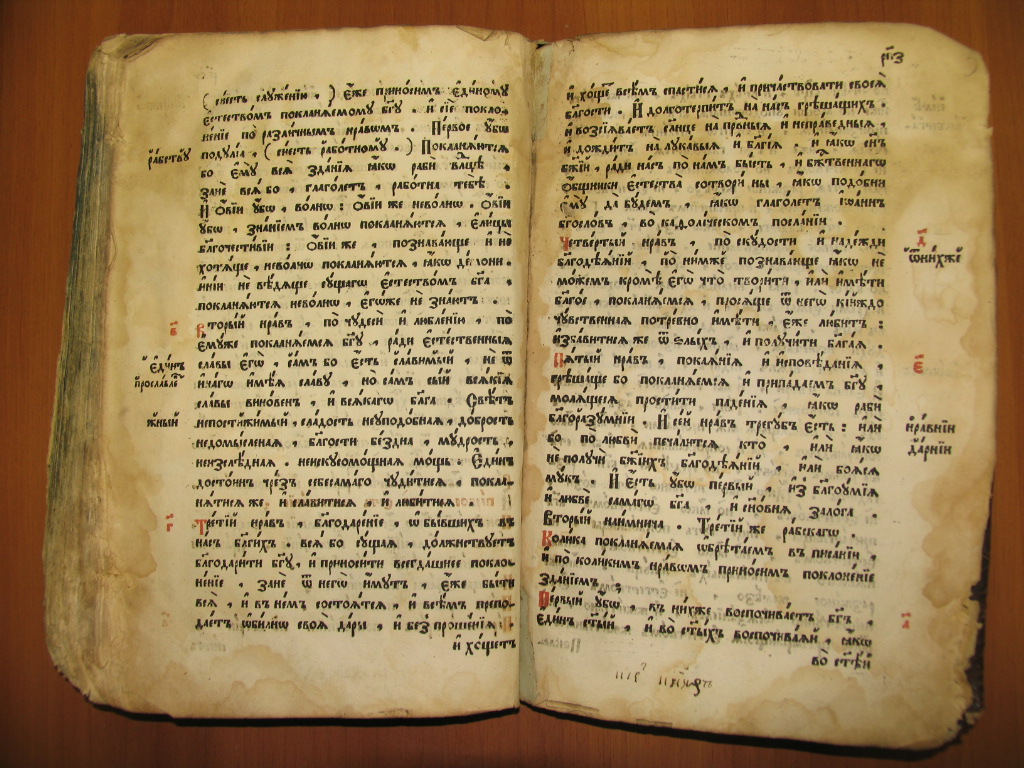 ( сиесть слꙋженїю , ) є҆́же прино́симъ є҆ди́номꙋ
є҆стество́мъ покланѧ́емомꙋ бг҃ꙋ . и҆ сїѐ покло-
не́нїе по разли́чнымъ нра́вѡмъ . Пе́рвое ᲂу҆́бѡ
рабе́тꙋ подꙋлі́а , ( сиесть рабо́тномꙋ . ) Покланѧ́ютсѧ
бо є҆мꙋ̀ всѧ̑ зда̑нїѧ ꙗ҆́кѡ рабѝ влⷣцѣ
занѐ всѧ̑ бо , глаго́летъ , рабо́тна тебѣ̀ .
И҆ ѻ҆́вїи ᲂу҆́бѡ , во́лнѡ : ѻ҆́вїи же нево́лнѡ . ѻ҆́вїи
ᲂу҆́бѡ , зна́нїемъ во́лнѡ покланѧ́ютсѧ , є҆ли́цы
бл҃гочести́вїи : ѻ҆́вїи же , познава́юще и҆ не
хотѧ́ще , нево́лнѡ покланѧ́ютсѧ , ꙗ҆́кѡ де́мони .
и҆ні́и не вѣ́дѧще сꙋ́щагѡ є҆стество́мъ бг҃а ,
покланѧ́ютсѧ нево́лнѡ , є҆гѡ́же не зна́ютъ .
в҃ Вторы́й нра́въ , по чꙋдесѝ и҆ люблє́нїю , по
є҆мꙋ́же покланѧ́емсѧ бг҃ꙋ , ра́ди є҆сте́ственныѧ
є҆ди́нъ прославле́ сла́вы є҆гѡ̀ , са́мъ бо є҆́сть сла́вимый , не ѿ
и҆на́гѡ и҆мѣ́ѧ сла́вꙋ , но са́мъ сы́й всѧ́кїѧ
сла́вы вино́венъ , и҆ всѧ́кагѡ бл҃га . Свѣ́тъ
жный непостижи́мый , сла́дость неꙋподо́бная , до́брость
недомы́сленая , бл҃гости бе́здна , мꙋ́дрость
неизслѣ́дная . неискꙋсомо́щная мо́щь . Є҆ди́нъ
досто́инъ чре́зъ себесама́го чꙋди́тисѧ , покла-
нѧ́тисѧ же , и҆ сла́витисѧ , и҆ люби́тисѧ .
г҃ Тре́тїй нра́въ , бл҃годаре́нїе , ѡ҆ бы́вшихъ въ
на́съ бл҃ги́хъ . всѧ̑ бо сꙋ́щая , до́лжнствꙋетъ
бл҃годари́ти бг҃ꙋ , и҆ приноси́ти всегда́шнее покло-
не́нїе , занѐ ѿ негѡ̀ и҆́мꙋтъ , є҆́же бы́ти
всѧ̑ , и҆ въ не́мъ состоѧ́тсѧ , и҆ всѣ́мъ препо-
дае́тъ ѻ҆би́лнѡ своѧ̑ да́ры , и҆ без̾ проше́нїѧ .
и҆ хо́щетъ
рм҃з
и҆ хо́щетъ всѣ́мъ спасти́сѧ , и҆ прича́ствовати своеѧ̀
бл҃гости . И҆ долготерпи́тъ на на́съ грѣша́щихъ .
и҆ возсїѧва́етъ сл҃нце на првⷣныѧ и҆ непра́ведныѧ ,
и҆ дожди́тъ на лꙋка́выѧ и҆ бл҃гі́ѧ . и҆ ꙗ҆́кѡ сн҃ъ
бж҃їй , ра́ди на́съ по на́мъ бы́сть , и҆ бж҃твеннагѡ
ѻ҆́бщники є҆стества̀ сотворѝ ны̀ , ꙗ҆́кѡ подо́бни
є҆мꙋ̀ да бꙋ́демъ , ꙗ҆́кѡ глаго́летъ і҆ѡа́ннъ
бг҃осло́въ , во каѳоли́ческомъ посла́нїи .
д҃ Четве́ртый нра́въ , по скꙋ́дости и҆ наде́жди
ѿни́хже бл҃годѣѧ́нїй , по ни́мже познава́юще ꙗ҆́кѡ не
мо́жемъ кромѣ̀ є҆гѡ̀ что̀ твори́ти , и҆лѝ и҆мѣ́ти
бл҃го́е , покланѧ́емсѧ , просѧ́ще ѿ негѡ̀ кі́йждо
чꙋ́вственная потре́бно и҆мѣ́ти , є҆́же лю́битъ :
и҆зба́витисѧ же ѿ ѕлы́хъ , и҆ полꙋчи́ти бл҃га́ѧ .
є҃ Пѧ́тый нра́въ , покаѧ́нїѧ и҆ и҆сповѣ́данїѧ ,
грѣша́ще бо покланѧ́емсѧ и҆ припа́даемъ бг҃ꙋ ,
молѧ́щесѧ прости́ти паде́нїѧ , ꙗ҆́кѡ рабѝ
и҆ра́внїи да́рнїи бл҃горазꙋ́мнїи . И҆ се́й нра́въ трегꙋ́бъ є҆́сть : и҆лѝ
бо по любвѝ печа́литсѧ кто̀ , и҆лѝ ꙗ҆́кѡ
не полꙋчѝ бж҃їихъ бл҃годѣѧ́нїй , и҆лѝ боѧ́сѧ
мꙋ́къ . И҆ є҆́сть ᲂу҆́бѡ пе́рвый , и҆з̾ бл҃гоꙋмїѧ
и҆ любвѐ сама́гѡ бг҃а , и҆ сыно́внѧ зало́га .
Вторы́й наи́мнича . Тре́тїй же ра́бскагѡ .
Коли́ка покланѧ́емая ѡ҆брѣта́емъ въ писа́нїи ,
и҆ по коли́кимъ нра́вѡмъ прино́симъ поклоне́нїе
зда́нїемъ .
а҃ Пе́рвый ᲂу҆́бѡ , въ ни́хже воспочива́етъ бг҃ъ ,
є҆ди́нъ ст҃ы́й , и҆ во ст҃ы́хъ воспочива́ѧй , ꙗ҆́кѡ
во ст҃ѣ́й